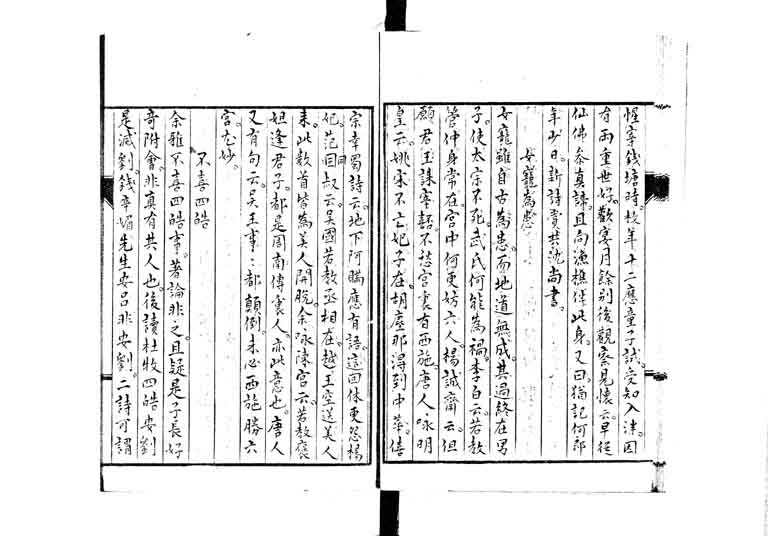 惺宰錢塘時枚年十二應童子試受知入泮因
有兩重世好歡宴月餘別後觀察見懷云早從
仙佛參真諦且向漁樵伴此身又曰猶記何郎
年少日新詩賣共沈尚書
女寵為患
女寵雖自古為患而地道無成其過終在男
子使太宗不死武氏何能為禍李白云若教
管仲身常在宮中何更妨六人楊誠齋云但
願君王誅宰嚭不愁宮裏有西施唐人詠明
皇云姚宋不亡妃子在胡塵那得到中華僖
宗幸蜀詩云地下阿瞞應有語這回休更怨楊
妃范同叔云吳國若教丞相在越王空送美人
來此數首皆為美人開脫余詠陳宮云若教褒
妲逢君子都是周南傳裏人亦此意也唐人
又有句云吳王事事都顛倒未必西施勝六
宮尤妙
不喜四皓
余雅不喜四皓事著論非之且疑是子長好
奇附會非真有其人也後讀杜牧四皓安劉
是滅劉錢辛楣先生安呂非安劉二詩可謂